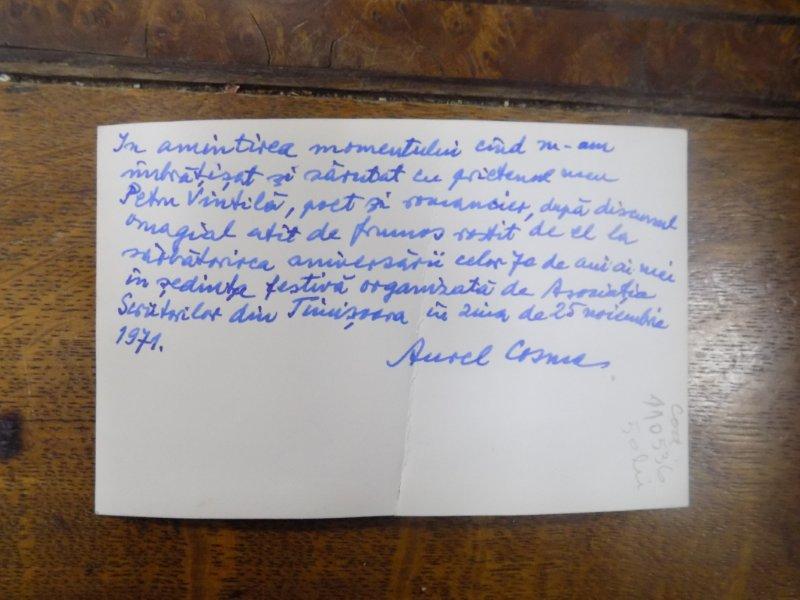 In amintirea momentului cînd m-am
îmbrățișat și sărutat cu prietenul meu
Petru Vintilă, poet și romancier, după discursul
omagial atît de frumos rostit de el la
sărbătorirea aniversării celor 70 de ani ai mei
în ședința festivă organizată de Asociația
Scriitorilor din Timișoara în ziua de 25 noiembrie
1971.
Aurel Cosma